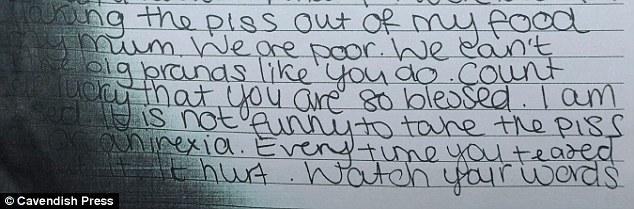 the piss out of my food
mum. We are poor. We can't
big brands like you do. Count
lucky that you are so blessed. I am
It is not funny to take the piss
anirexia. Every time you teased
it hurt. Watch your words
© Cavendish Press